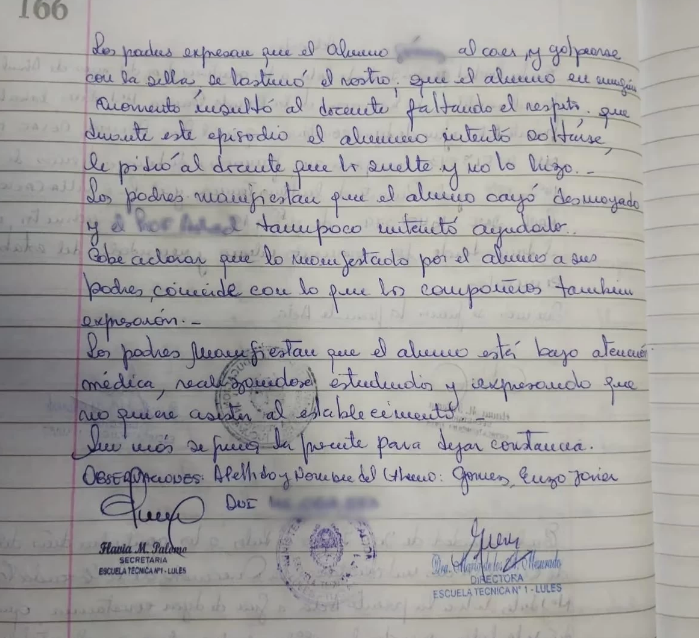 166
Los padres expresan que el alumno al caer, y golpearse
con la silla, se lastimó el rostro; que el alumno en ningún
momento insultó al docente faltando el respeto. que
durante este episodio el alumno intentó soltarse,
le pidió al docente que lo suelte y no lo hizo. -
Los padres manifiestan que el alumno cayó desmayado
y tampoco intentó ayudarlo..
Cabe aclarar que lo manifestado por el alumno a sus
padres, coincide con lo que los compañeros también
expresaron. -
Los padres manifiestan que el alumno está bajo atención
médica, realizándose estudios y expresando que
no quiere asistir al establecimiento. -
Sin más se firma la presente para dejar constancia.
OBSERVACIONES: Apellido y Nombre del Alumno: Gomez, Enzo Javier
DNI
Flavia M. Palomo
SECRETARIA
ESCUELA TECNICA N°1 - LULES
DIRECTORA
ESCUELA TECNICA N° 1 - LULES